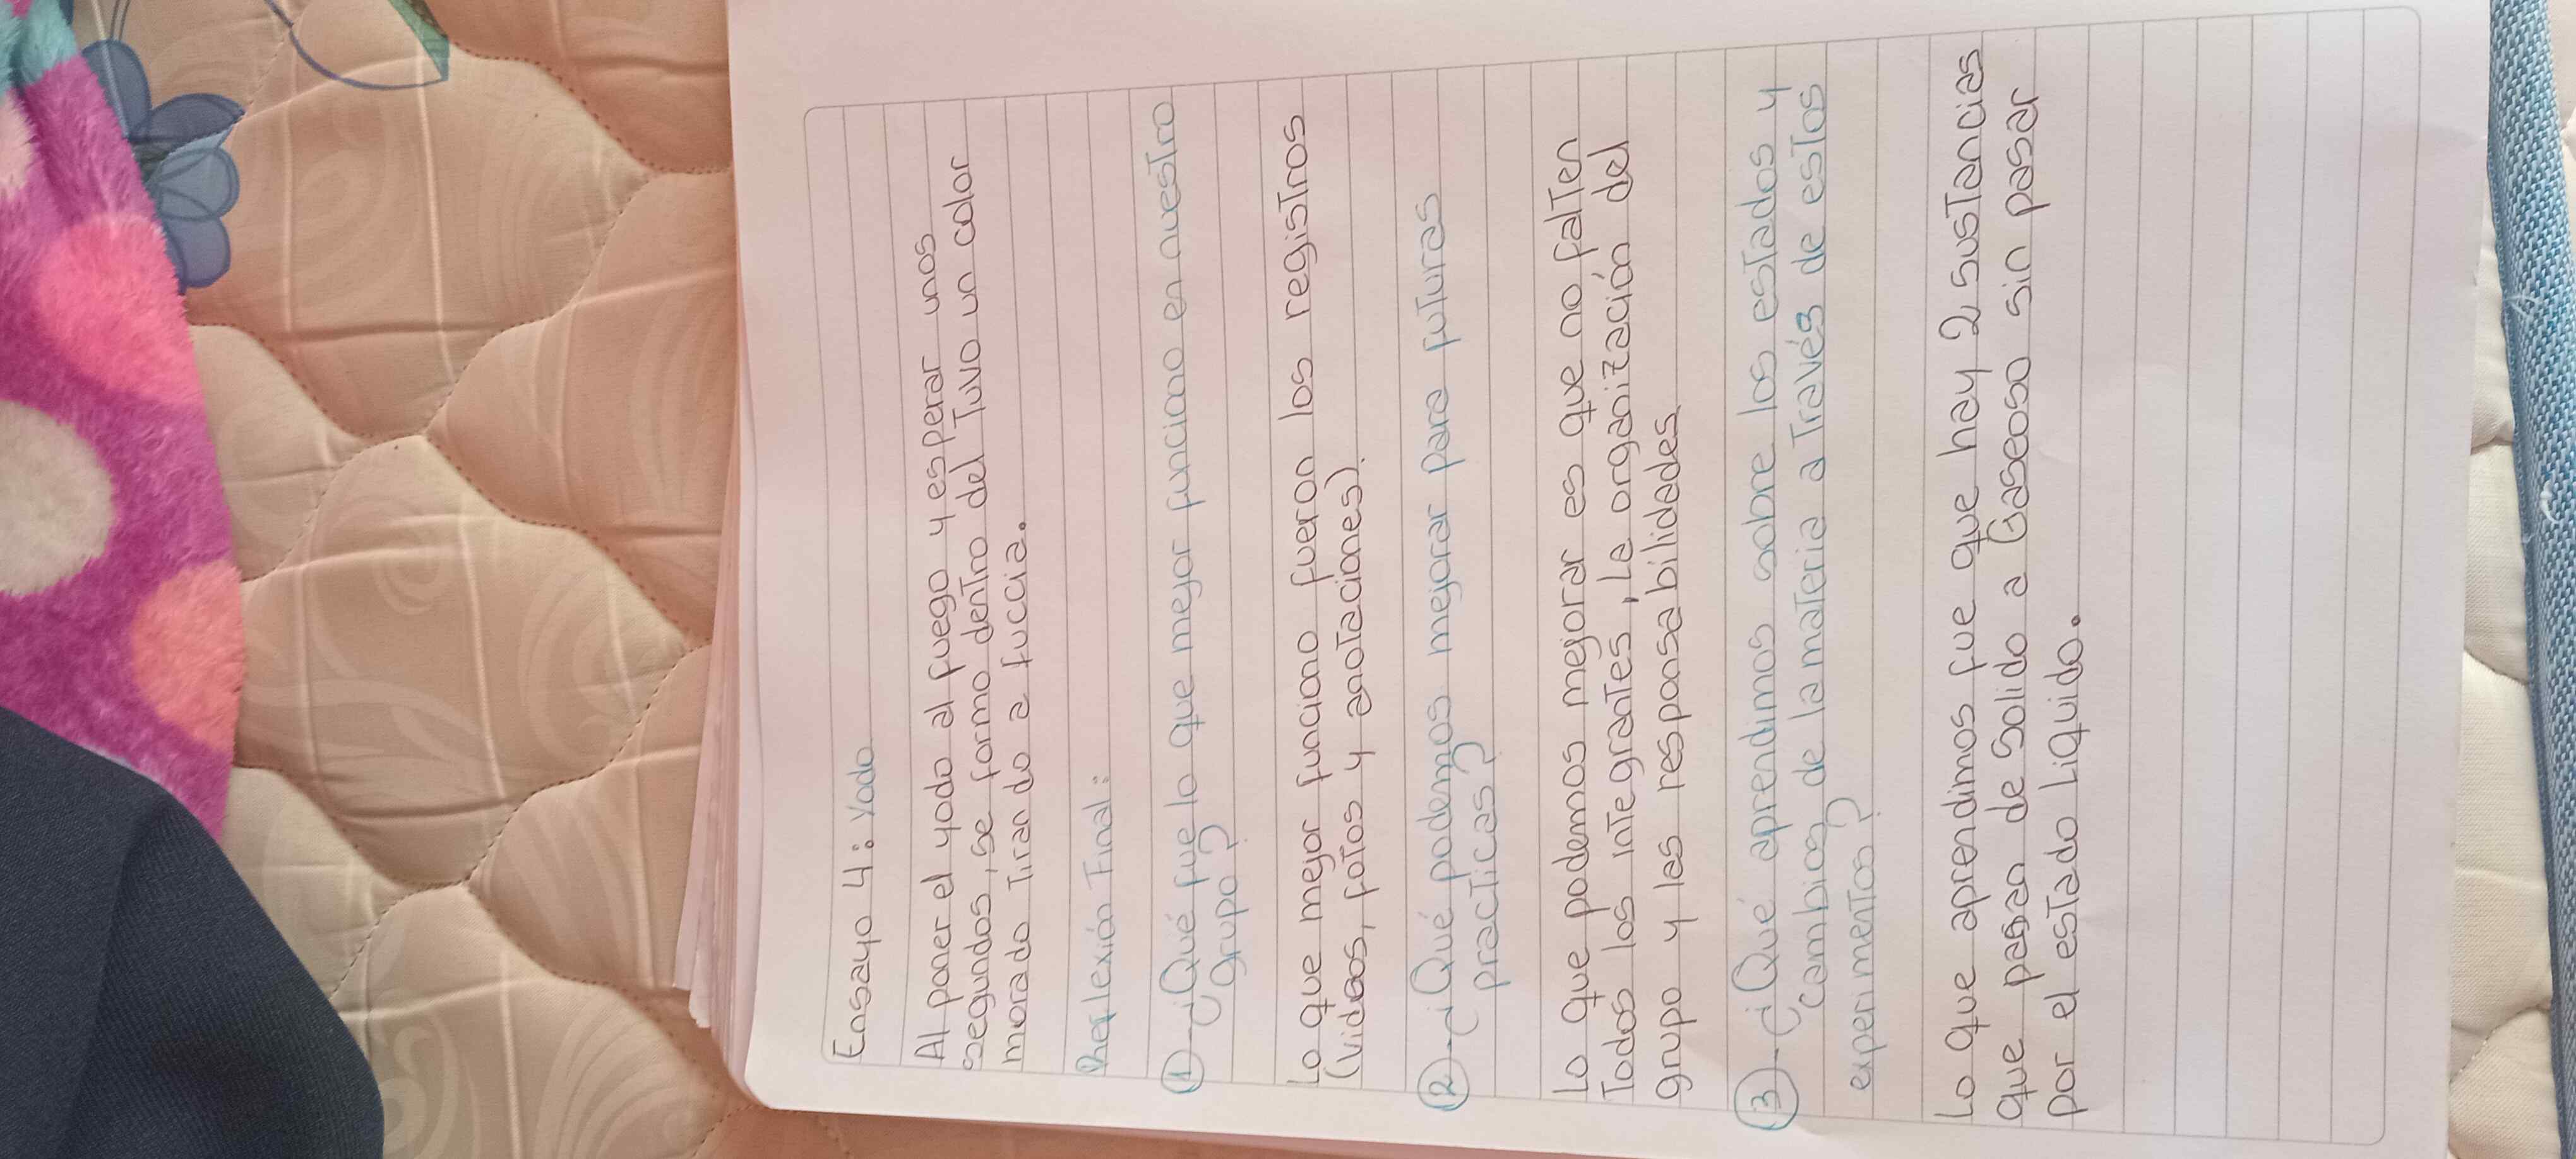 Ensayo 4: Yodo
Al poner el yodo al fuego y esperar unos
segundos, se formo dentro del Tuvo un color
morado Tirando a fuccia.
Reflexión Final:
①-¿Qué fue lo que mejor funciono en nuestro
grupo?
Lo que mejor funciono fueron los registros
(videos, fotos y anotaciones).
②-¿Qué podemos mejorar para futuras
practicas?
Lo que podemos mejorar es que no falten
Todos los integrantes, la organización del
grupo y las responsabilidades.
③-¿Qué aprendimos sobre los estados y
cambios de la materia a Través de estos
experimentos?
Lo que aprendimos fue que hay 2 sustancias
que pasan de Solido a Gaseoso sin pasar
por el estado Liquido.